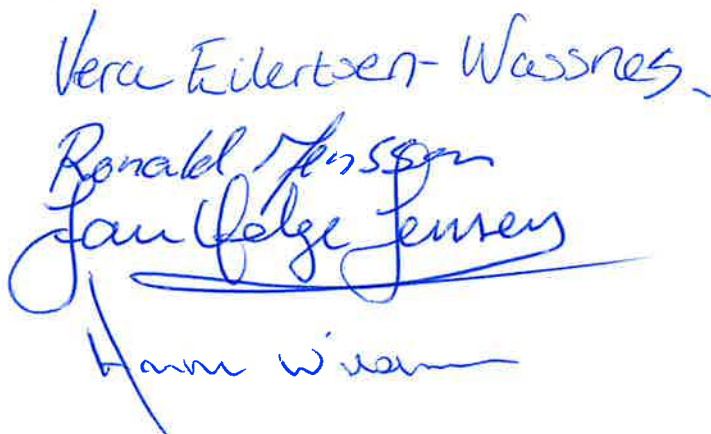 Vera Eilertsen-Wassnes
Ronald Jenssen
Jan Helge Jensen
Hanne